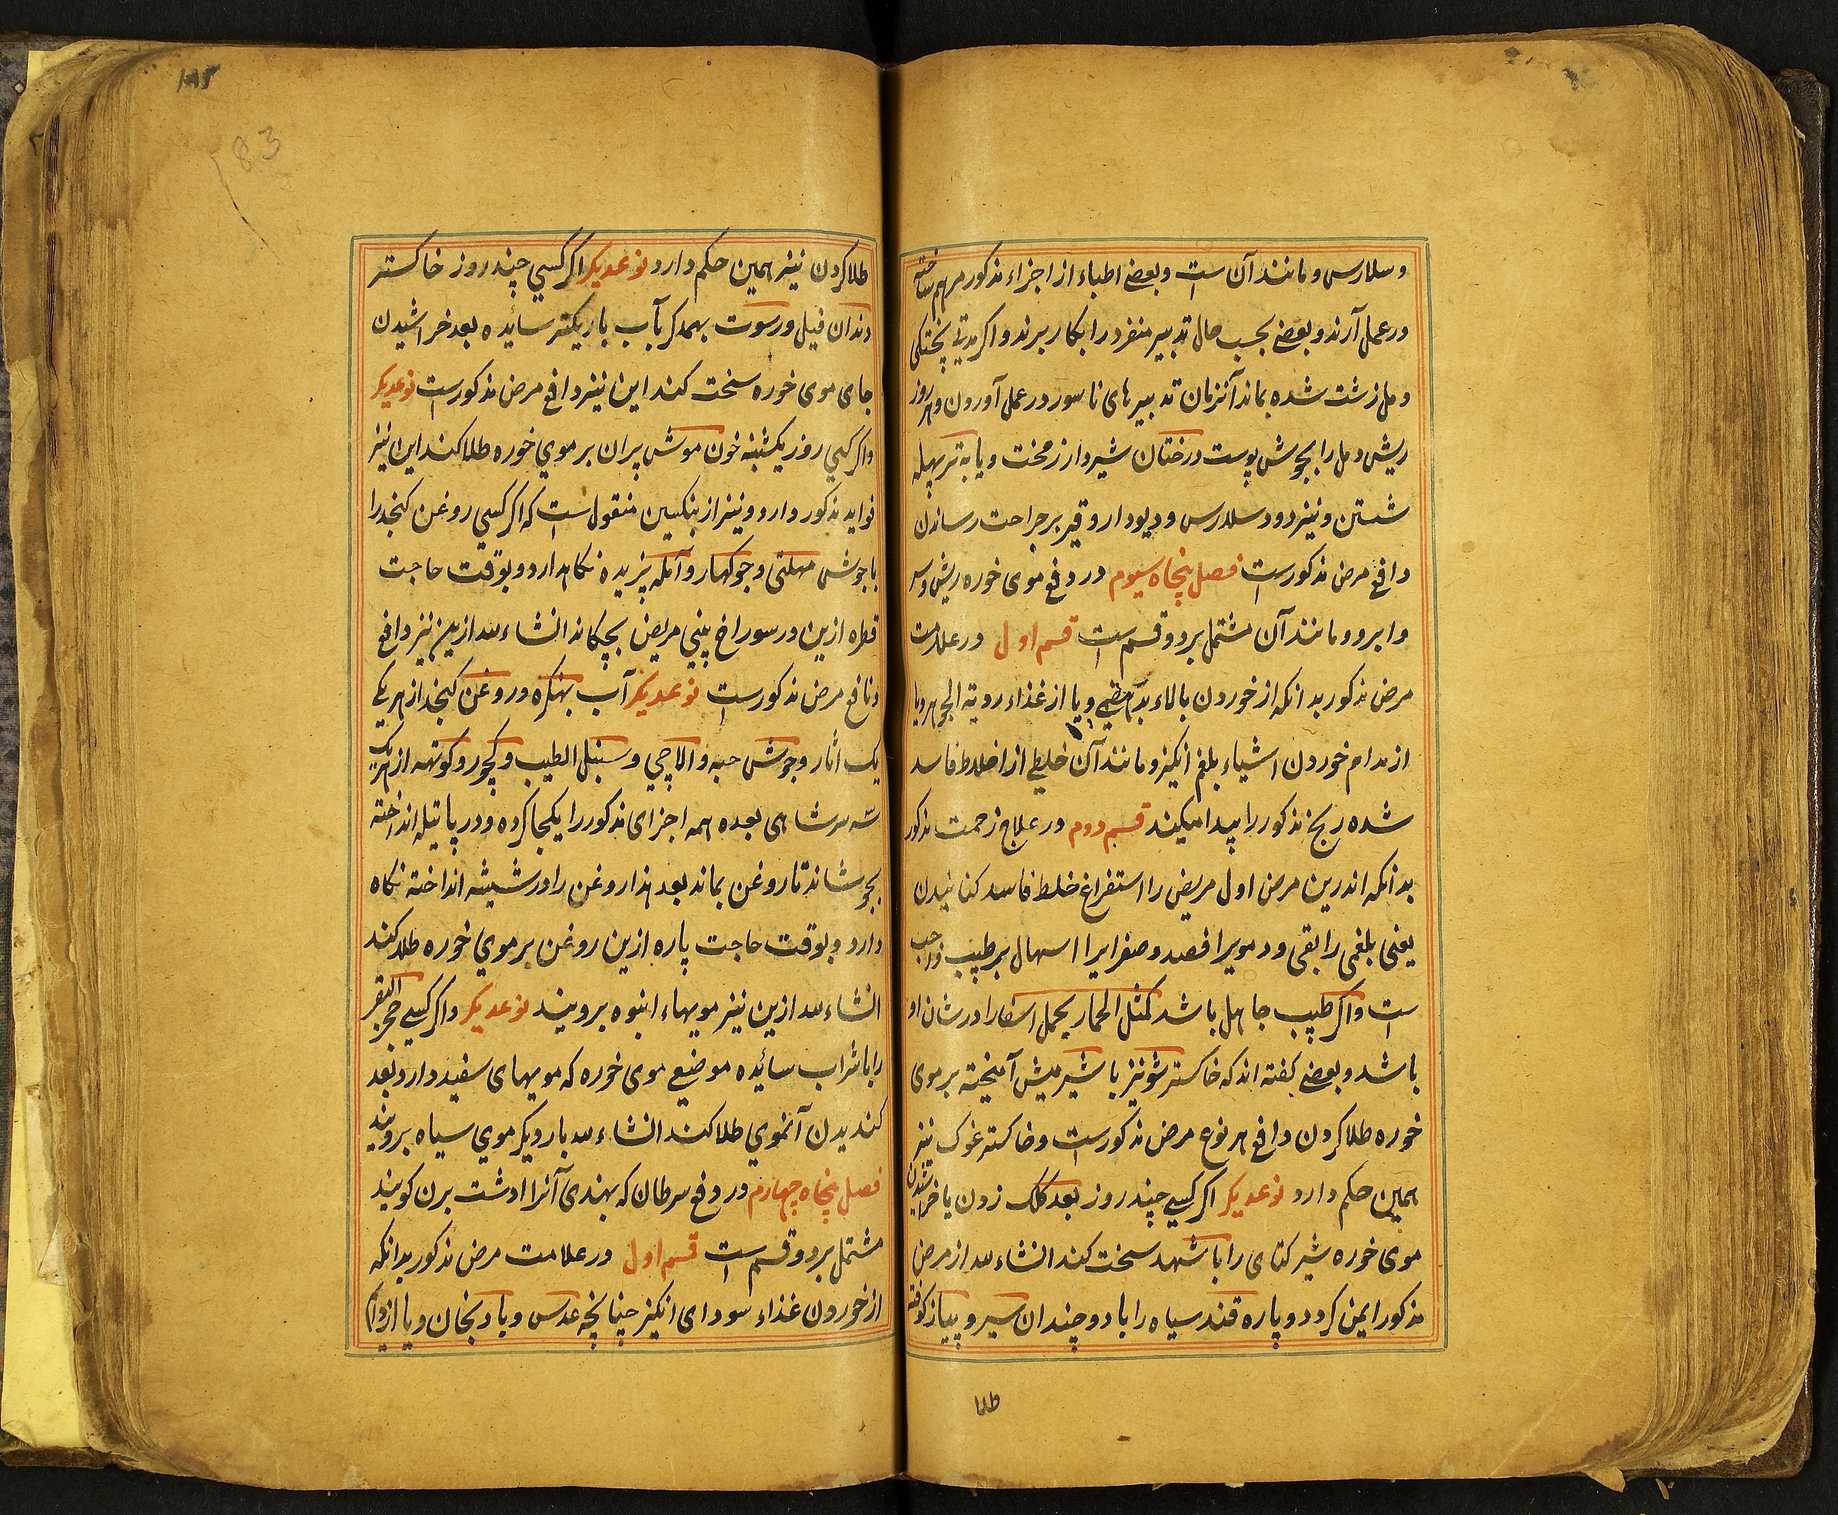 و سلارس و مانند آن است و بعضے اطباء از اجزاء مذکور مرهم ساخته
در عمل آرند و بعضے بحسب حال تدبیر منفرد را بکار برند و اگر مدتے پختگی
دمل زشت شده بماند آنزمان تدبیر های ناسور در عمل آورون و هر روز
ریش دمل را بجوش پوست درختان شیردار زمخت و یا به تر پهله
شستن و نیز دود سلارس و دیودار و قیر بر جراحت رساندن
دافع مرض مذکور است فصل پنجاه سیوم در دفع موی خوره ریش و سر
و ابرو و مانند آن مشتمل بر دو قسم است قسم اول در علامت
مرض مذکور بدانکه از خوردن بالاء بدهضمے و یا از غذاء ردیة الجوهر و یا
از مدام خوردن اشیاء بلغم انگیز و مانند آن خلیطے از اخلاط فاسد
شده رنج مذکور را پیدا میکند قسم دوم در علاج زحمت مذکور
بدانکه اندرین مرض اول مریض را استفراغ خلط فاسد کنانیدن
یعنی بلغمی را بقی و دمویرا فصد و صفرا یرا اسهال بر طبیب واجب
است و اگر طبیب جاهل باشد کمثل الحمار یحمل اسفارا در شان او
باشد و بعضے گفته اند که خاکستر شونیز با شیر میش آمیخته بر موی
خوره طلا کردن دافع هر نوع مرض مذکور است و خاکستر غوک نیز
همین حکم دارد نوعدیگر اگر کسے چند روز بعد کلک زدن یا خراشیدن
موی خوره شیر کتای را با شهد سخت کند انشاءلله از مرض
مذکور ایمن گردد و پاره قند سیاه را با دو چندان سیر و پیاز کوفته
طلا
۱۸۳
83
طلا کردن نیز همین حکم دارد نوعدیگر اگر کسی چند روز خاکستر
دندان فیل و رسوت بهمدگر بآب باریکتر سائیده بعد خراشیدن
جای موی خوره سخت کند این نیز دافع مرض مذکور است نوعدیگر
و اگر کسی روز یکشنبه خون موش پران بر موی خوره طلا کند این نیز
فواید مذکور دارد و نیز از بنکسین منقول است که اگر کسی روغن کنجد را
با جوش مهلتی و جوکهار و آمله پزیده نگاهدارد و بوقت حاجت
قطره ازین در سوراخ بینی مریض بچکاند انشاءلله ازین نیز دافع
و نافع مرض مذکور است نوعدیگر آب بهنکره و روغن کنجد از هر یکے
یک اثار و جوش حبه و الاچی و سنبل الطیب و کچور و کوتهه از هر یک
سه سرشاهی بعده همه اجزای مذکور را یکجا کرده و در پاتیله انداخته
بجوشاند تا روغن بماند بعد هذا روغن را در شیشه انداخته نگاه
دارد و بوقت حاجت پاره ازین روغن بر موی خوره طلا کند
انشاءلله ازین نیز مویهاء انبوه برویند نوعدیگر و اگر کسے حجر البقر
را با شراب سائیده موضع موی خوره که مویهای سفید دارد بعد
کندیدن آنموی طلا کند انشاءلله بار دیگر موی سیاه برویند
فصل پنجاه چهارم در دفع سرطان که بهندی آنرا ادشت برن گویند
مشتمل بر دو قسم است قسم اول در علامت مرض مذکور بدانکه
از خوردن غذاء سودای انگیز چنانچه عدس و بادنجان و یا از دوام